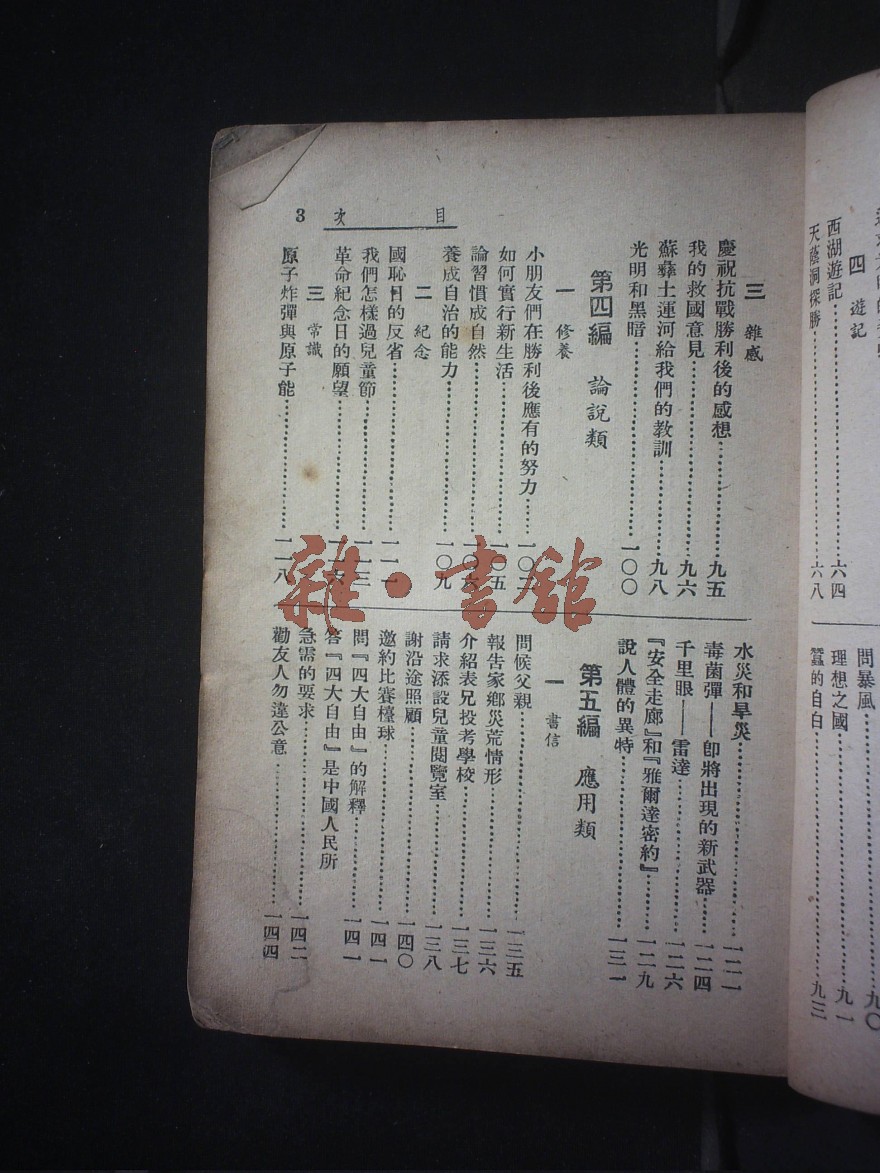 目次 3
三 雜感
慶祝抗戰勝利後的感想…………九五
我的救國意見…………九六
蘇彝士運河給我們的教訓…………九八
光明和黑暗…………一〇〇
第四編 論說類
一 修養
小朋友們在勝利後應有的努力…………一〇二
如何實行新生活…………一〇五
論習慣成自然…………一〇六
養成自治的能力…………一〇九
二 紀念
國恥日的反省…………一一一
我們怎樣過兒童節…………一一三
革命紀念日的願望…………一一六
三 常識
原子炸彈與原子能…………一一八
水災和旱災…………一二一
毒菌彈——卽將出現的新武器…………一二四
千里眼——雷達…………一二六
『安全走廊』和『雅爾達密約』…………一二九
說人體的異特…………一三一
第五編 應用類
一 書信
問候父親…………一三五
報告家鄉災荒情形…………一三六
介紹表兄投考學校…………一三七
請求添設兒童閱覽室…………一三八
謝沿途照顧…………一四〇
邀約比賽檯球…………一四一
問『四大自由』的解釋…………一四一
答『四大自由』是中國人民所
急需的要求…………一四二
勸友人勿違公意…………一四四
四 遊記
西湖遊記…………六四
天蔭洞探勝…………六八
問暴風…………九〇
理想之國…………九一
蠶的自白…………九三
雜·書館